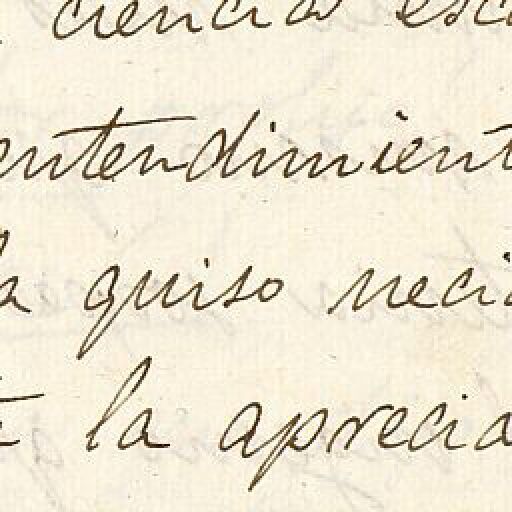 ciencias esc
entendimient
la quiso neci
la aprecia